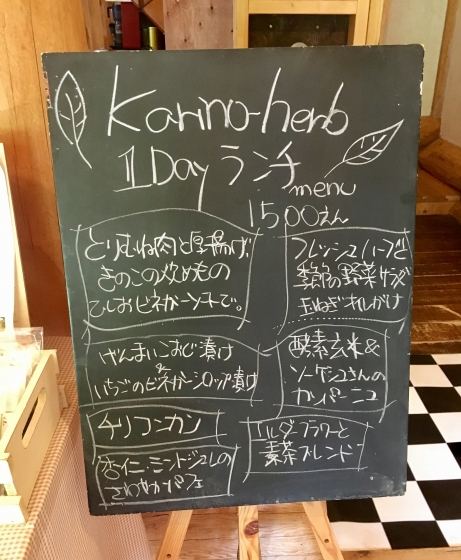 Karino-herb
1Day ランチ
menu
1500えん
とりむね肉と厚揚げ、
きのこの炒めもの
ひしおビネガーソースで。
フレッシュハーブと
季節の野菜サラダ
玉ねぎオイルがけ
げんまいこおじ漬け
&
いちごのビネガーシロップ漬け
酵素玄米&
ソーケシュさんの
カンパーニュ
チリコンカン
エルダーフラワーと
素茶ブレンド
杏仁・ミントジュレの
さわやかパフェ